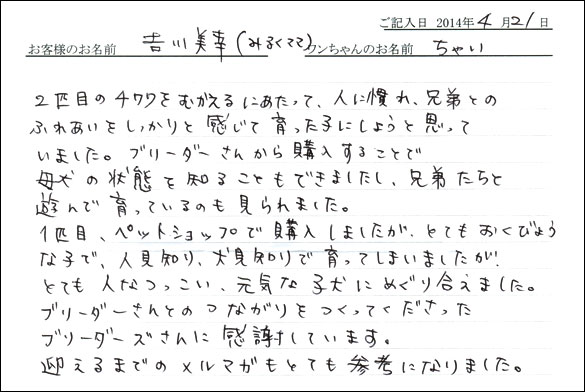 ご記入日 2014年4月21日
お客様のお名前 吉川美幸(みるくママ) ワンちゃんのお名前 ちゃい
2匹目のチワワをむかえるにあたって、人に慣れ、兄弟との
ふれあいをしっかりと感じて育った子にしようと思って
いました。ブリーダーさんから購入することで
母犬の状態を知ることもできましたし、兄弟たちと
遊んで育っているのも見られました。
1匹目、ペットショップで購入しましたが、とてもおくびょう
な子で、人見知り、犬見知りで育ってしまいましたが、
とても人なつっこい、元気な子犬にめぐり合えました。
ブリーダーさんとのつながりをつくってくださった
ブリーダーズさんに感謝しています。
迎えるまでのメルマガもとても参考になりました。